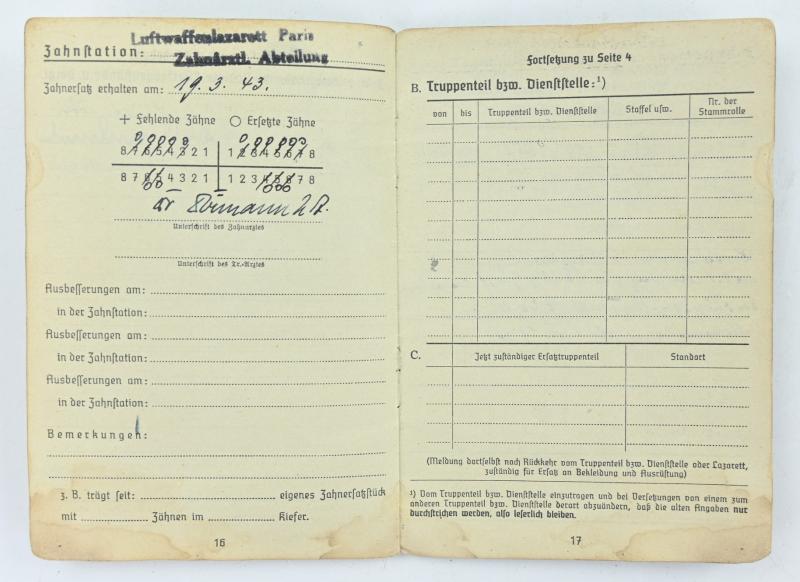 Luftwaffenlazarett Paris
Zahnstation: Zahnärztl. Abteilung
Zahnersatz erhalten am: 19. 3. 43.
+ Fehlende Zähne O Ersetzte Zähne
8 7 6 5 4 3 2 1 | 1 2 3 4 5 6 7 8
8 7 6 5 4 3 2 1 | 1 2 3 4 5 6 7 8
Dr
Unterschrift des Zahnarztes
Unterschrift des Tr.-Arztes
Ausbesserungen am:
in der Zahnstation:
Ausbesserungen am:
in der Zahnstation:
Ausbesserungen am:
in der Zahnstation:
Bemerkungen:
z. B. trägt seit: eigenes Zahnersatzstück
mit Zähnen im Kiefer.
16
Fortsetzung zu Seite 4
B. Truppenteil bzw. Dienststelle:¹)
von bis Truppenteil bzw. Dienststelle Staffel usw. Nr. der Stammrolle
C. Jetzt zuständiger Ersatztruppenteil Standort
(Meldung dortselbst nach Rückkehr vom Truppenteil bzw. Dienststelle oder Lazarett,
zuständig für Ersatz an Bekleidung und Ausrüstung)
¹) Vom Truppenteil bzw. Dienststelle einzutragen und bei Versetzungen von einem zum
anderen Truppenteil bzw. Dienststelle derart abzuändern, daß die alten Angaben nur
durchstrichen werden, also leserlich bleiben.
17